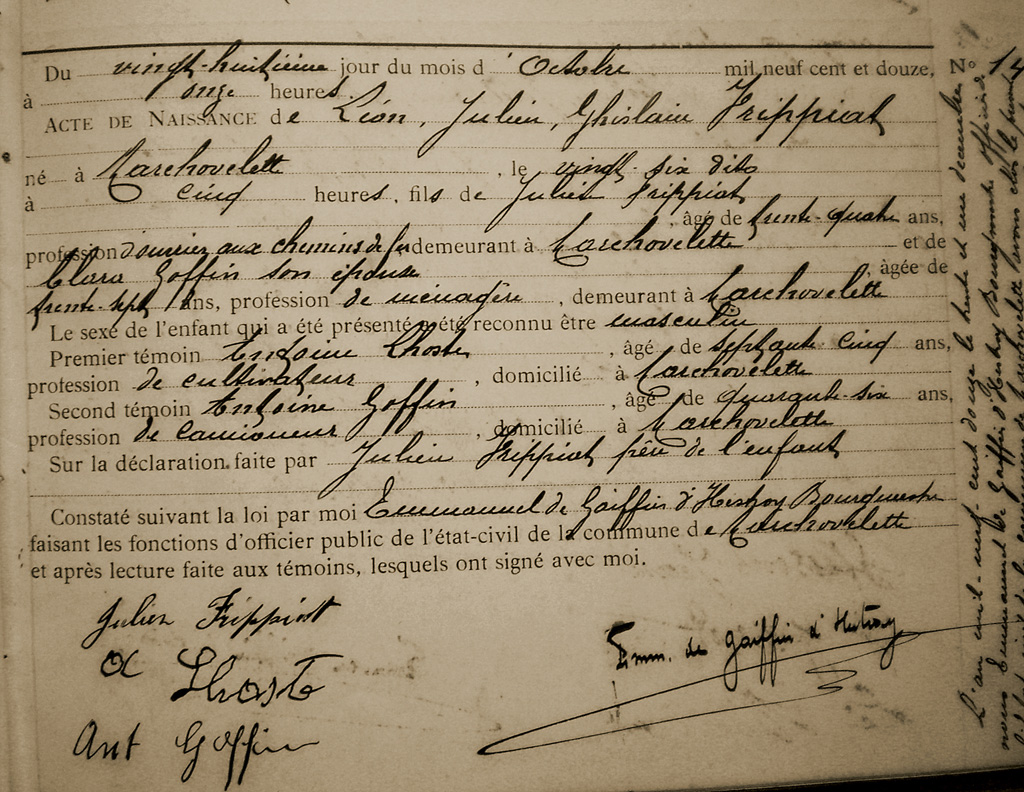 Du vingt-huitième jour du mois d'Octobre mil neuf cent et douze,
à onze heures.
ACTE DE NAISSANCE de Léon, Julien, Ghislain Frippiat
né à Marchovelette, le vingt-six dito
à cinq heures, fils de Julien Frippiat
, âgé de trente-quatre ans,
profession d'ouvrier aux chemins de fer demeurant à Marchovelette et de
Clara Goffin son épouse , âgée de
trente-sept ans, profession de ménagère, demeurant à Marchovelette
Le sexe de l'enfant qui a été présenté a été reconnu être masculin
Premier témoin Antoine Lhoste, âgé de septante cinq ans,
profession de cultivateur, domicilié à Marchovelette
Second témoin Antoine Goffin, âgé de quarante-six ans,
profession de camioneur, domicilié à Marchovelette
Sur la déclaration faite par Julien Frippiat père de l'enfant
Constaté suivant la loi par moi Emmanuel de Gaiffier d'Hestroy Bourgmestre
faisant les fonctions d'officier public de l'état-civil de la commune de Marchovelette
et après lecture faite aux témoins, lesquels ont signé avec moi.
Julien Frippiat
A Lhoste
Ant Goffin
Emm. de Gaiffier d'Hestroy
No 14
L'an mil-neuf-cent douze le trente et un décembre
nous Emmanuel de Gaiffier d'Hestroy Bourgmestre officier de